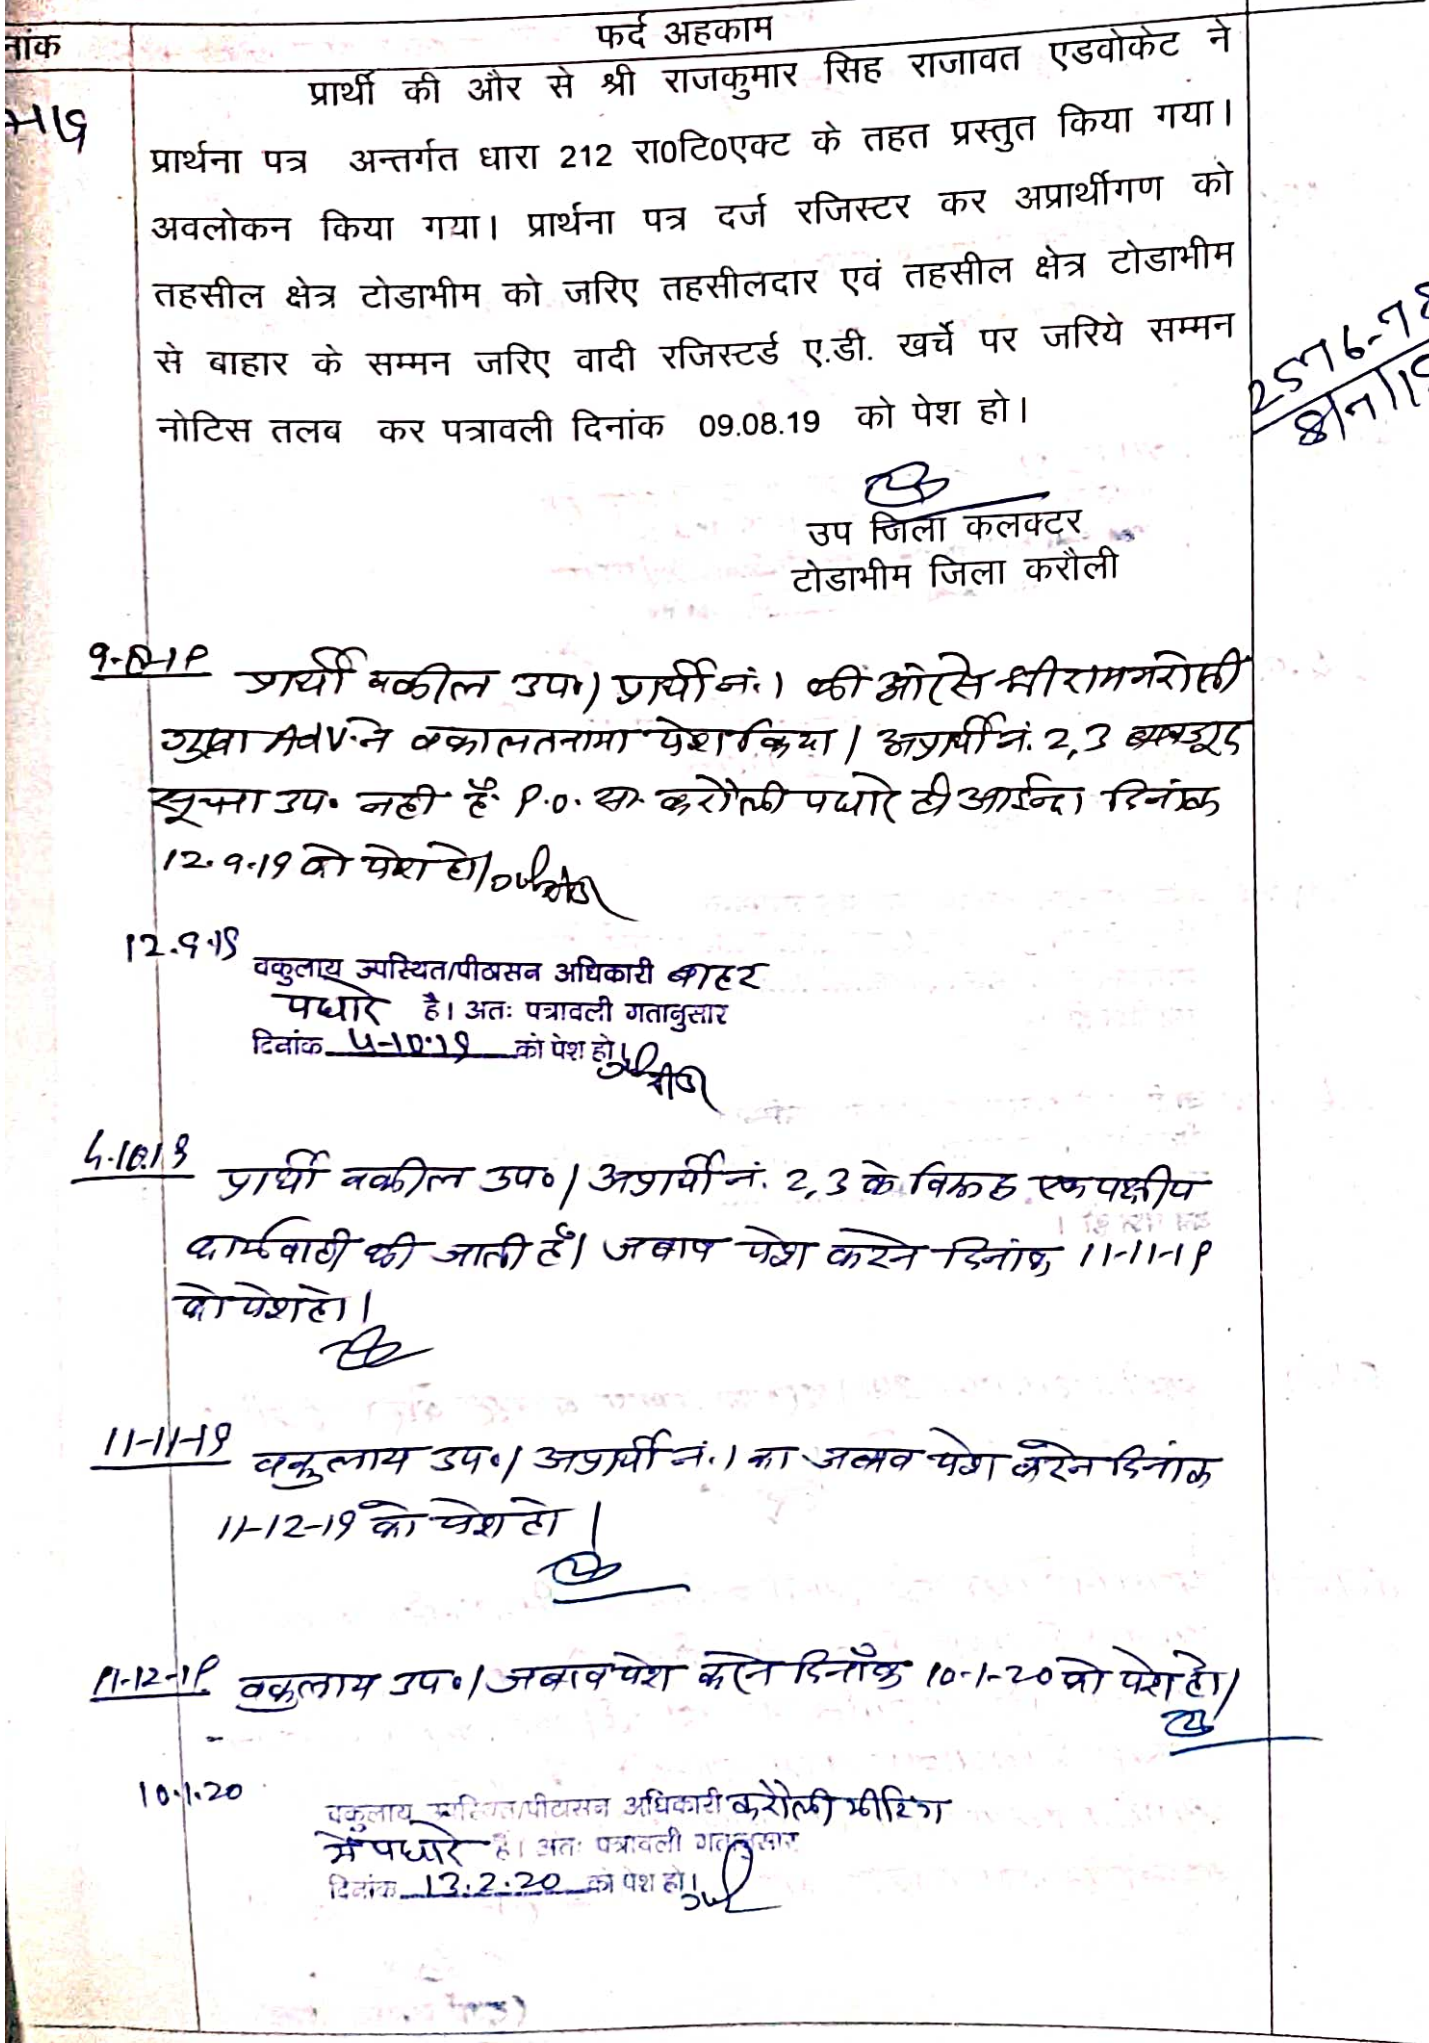 नांक
फर्द अहकाम
प्रार्थी की और से श्री राजकुमार सिह राजावत एडवोकेट ने
प्रार्थना पत्र अन्तर्गत धारा 212 रा0टि0एक्ट के तहत प्रस्तुत किया गया।
अवलोकन किया गया। प्रार्थना पत्र दर्ज रजिस्टर कर अप्रार्थीगण को
तहसील क्षेत्र टोडाभीम को जरिए तहसीलदार एवं तहसील क्षेत्र टोडाभीम
से बाहार के सम्मन जरिए वादी रजिस्टर्ड ए.डी. खर्चे पर जरिये सम्मन
नोटिस तलब कर पत्रावली दिनांक 09.08.19 को पेश हो।
2576-78
8/7/19
उप जिला कलक्टर
टोडाभीम जिला करौली
9-8-19 प्रार्थी वकील उप०। प्रार्थी नं.1 की ओर से श्री रामभरोसी
गुप्ता Adv. ने वकालतनामा पेश किया। अप्रार्थी नं. 2,3
सूचना उप० नही है P.O. सा. करौली पधारे है आईन्दा दिनांक
12.9.19 को पेश हो।
12.9.19 वकुलाय उपस्थित/पीठासन अधिकारी बाहर
पधारे है। अतः पत्रावली गतानुसार
दिनांक 4-10-19 को पेश हो।
4.10.19 प्रार्थी वकील उप०। अप्रार्थी नं. 2,3 के विरूद्ध एक पक्षीय
कार्यवाही की जाती है। जबाव पेश करने दिनांक 11-11-19
को पेश हो।
11-11-19 वकुलाय उप०। अप्रार्थी नं.1 का जबाव पेश करने दिनांक
11-12-19 को पेश हो।
11-12-19 वकुलाय उप०। जबाव पेश करने दिनाँक 10-1-20 को पेश हो।
10.1.20 वकुलाय उपस्थित/पीठासन अधिकारी करौली मीटिंग
में पधारे है। अतः पत्रावली गतानुसार
दिनांक 13.2.20 को पेश हो।